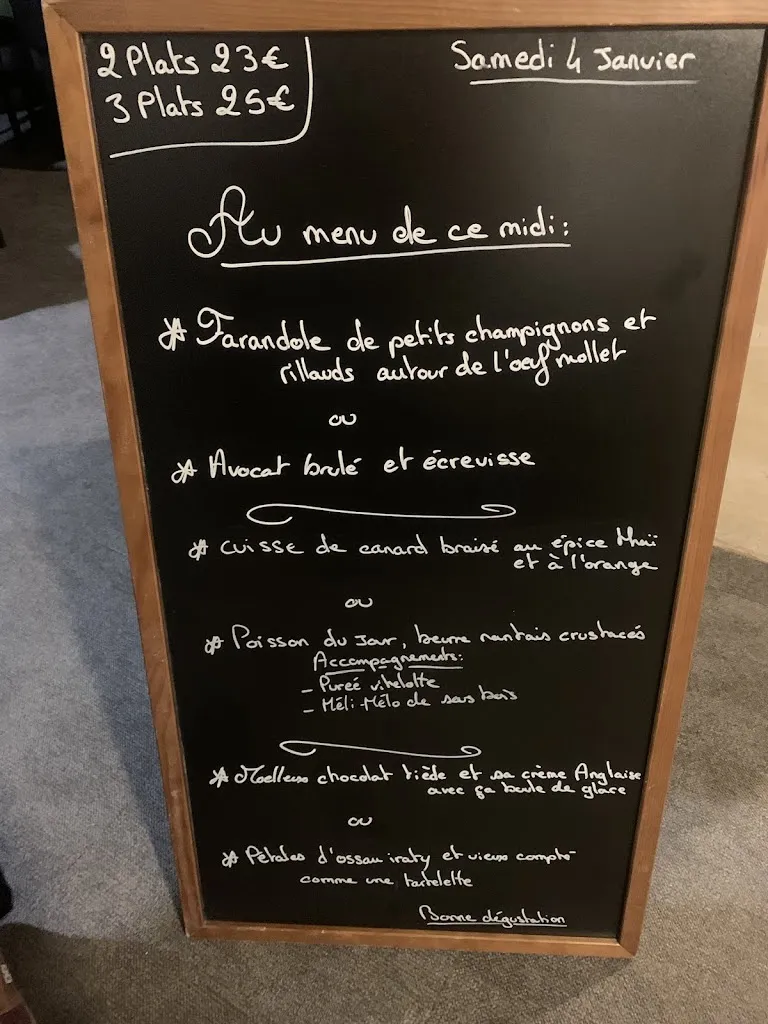 2 Plats 23€
3 Plats 25€
Samedi 4 Janvier
Au menu de ce midi:
* Farandole de petits champignons et
rillauds autour de l'oeuf mollet
ou
* Avocat brulé et écrevisse
* cuisse de canard braisé au épice Thaï
et à l'orange
ou
* Poisson du Jour, beurre nantais crustacés
Accompagnements:
- Pureé vitelotte
- Méli-Mélo de sous bois
* Moelleux chocolat tiède et sa crème Anglaise
avec sa boule de glace
ou
* Pétales d'ossau iraty et vieux compté
comme une tartelette
Bonne dégustation